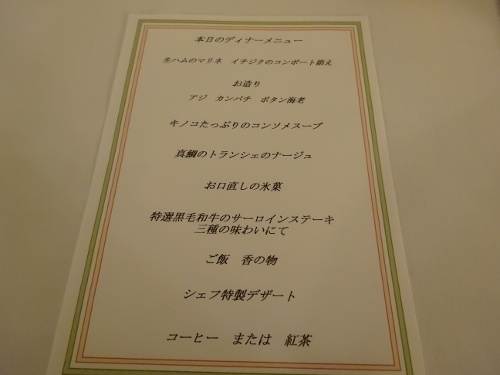 本日のディナーメニュー
生ハムのマリネ　イチジクのコンポート添え
お造り
アジ　カンパチ　ボタン海老
キノコたっぷりのコンソメスープ
真鯛のトランシェのナージュ
お口直しの氷菓
特選黒毛和牛のサーロインステーキ
三種の味わいにて
ご飯　香の物
シェフ特製デザート
コーヒー　または　紅茶